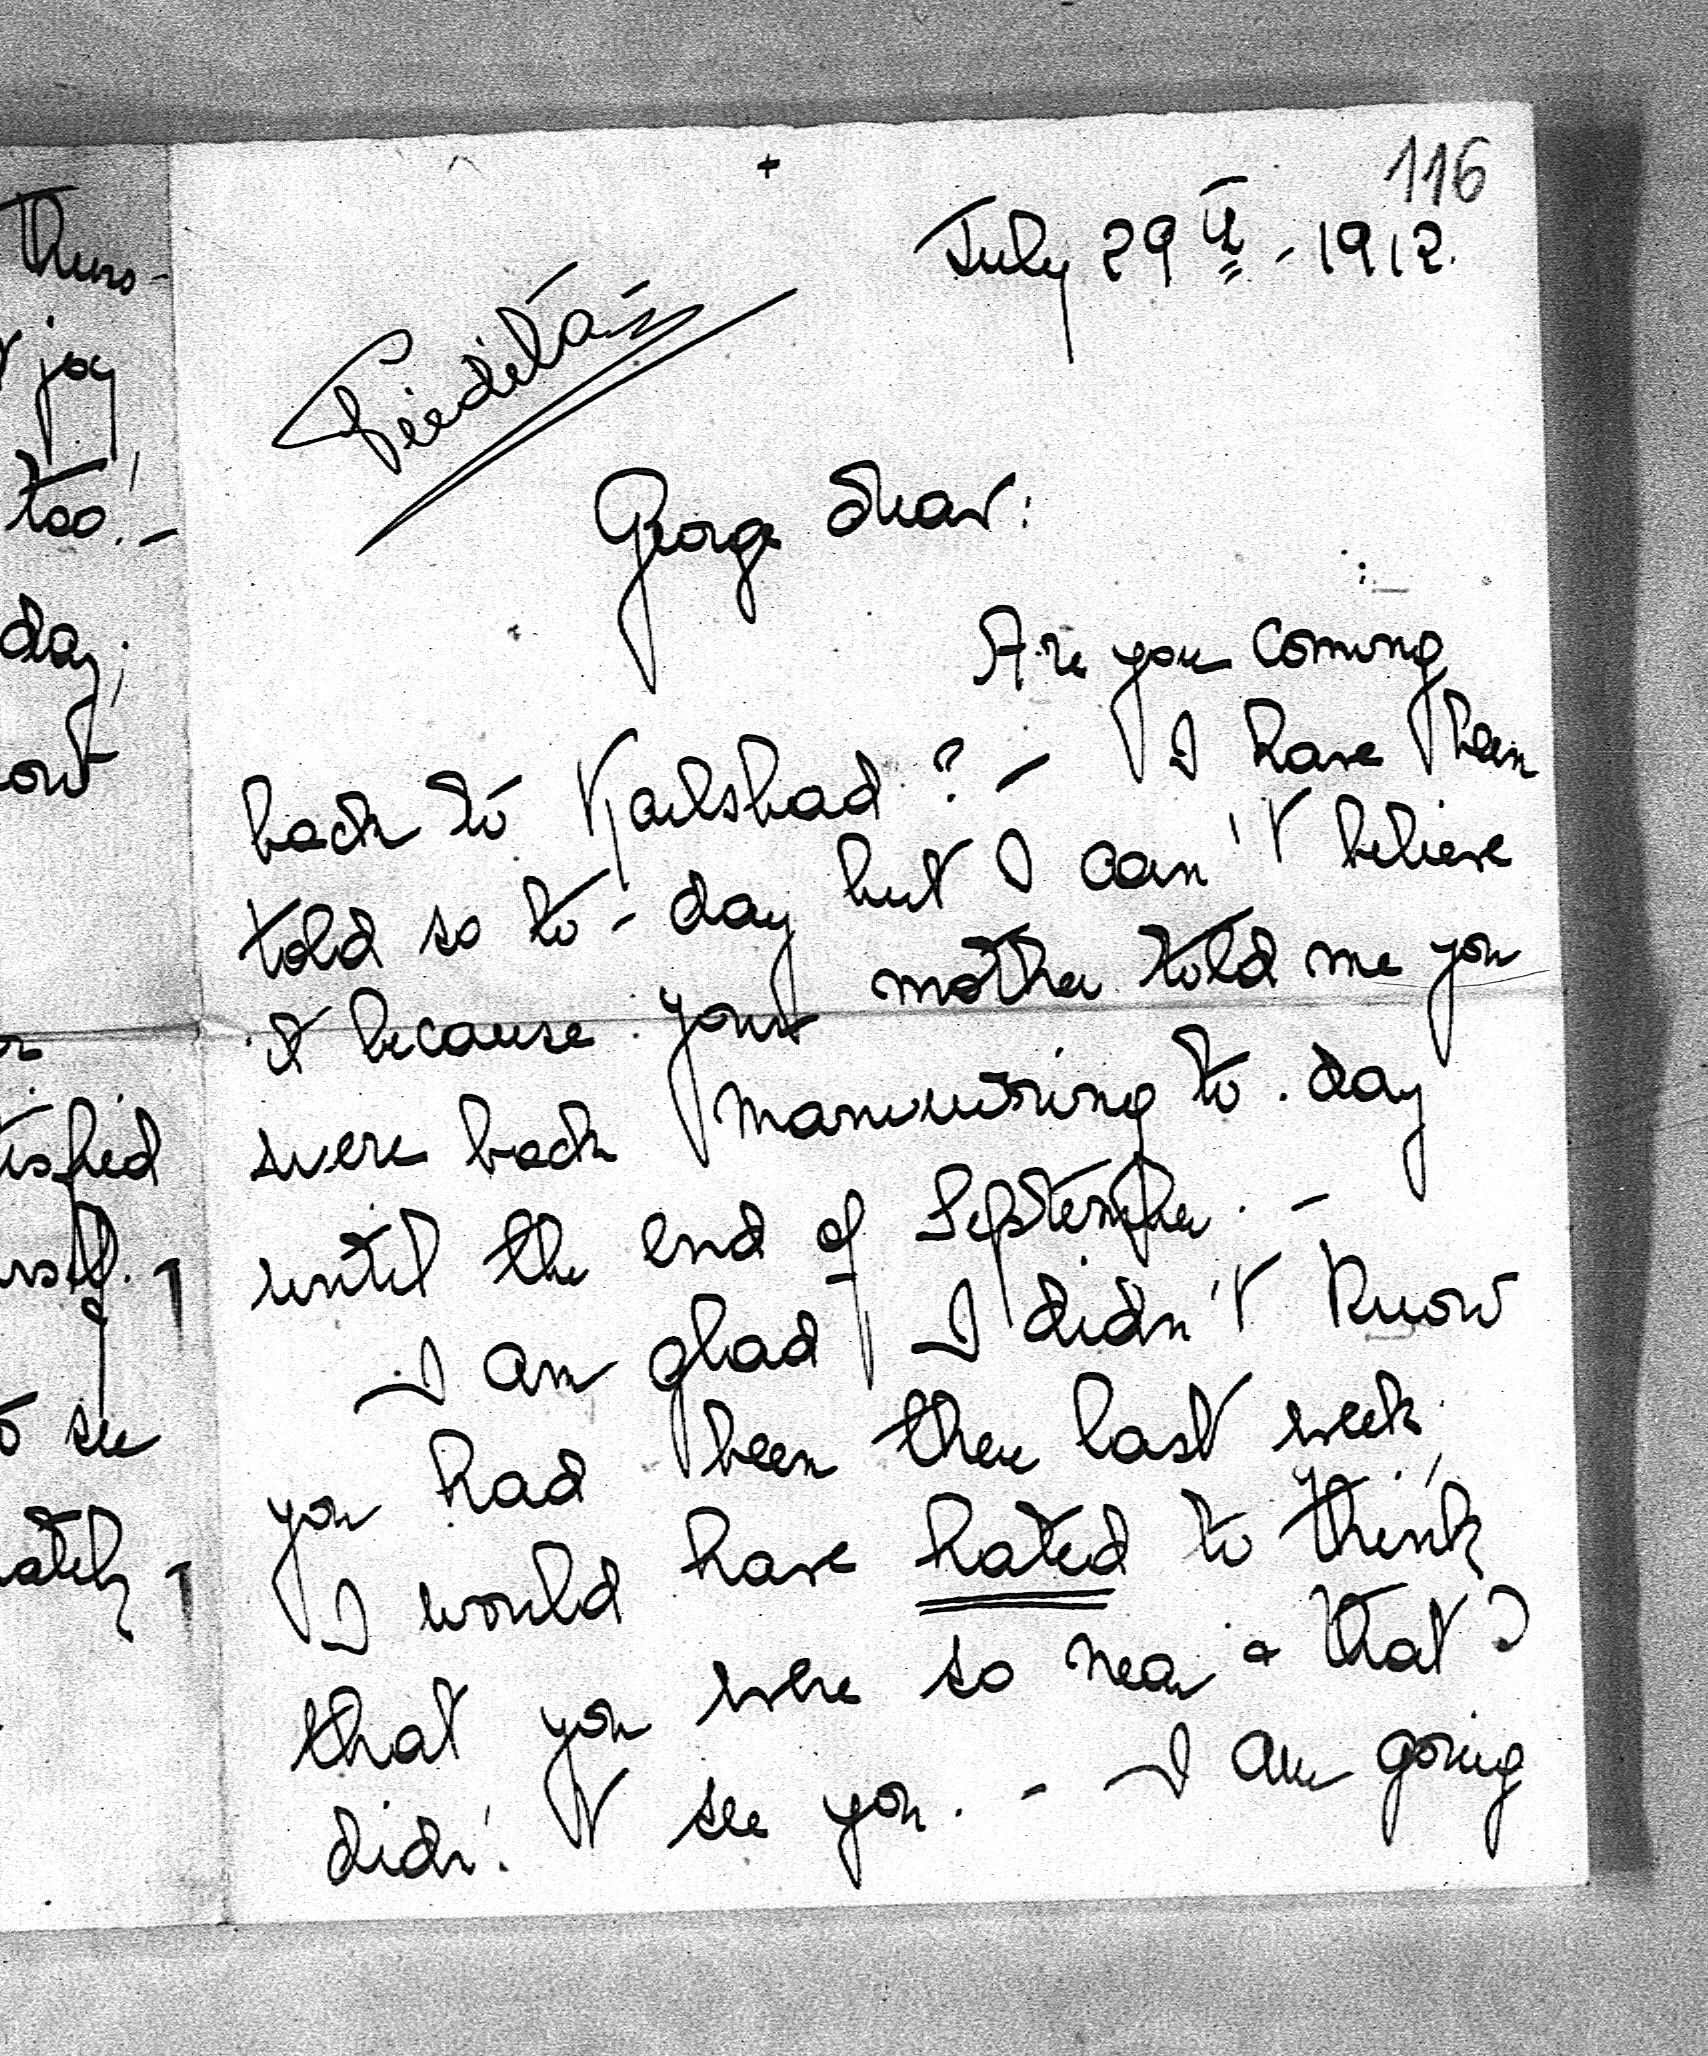 Thurs-
joy
too! -
day;
out
tisfied
rself. -
to see
ately -
116
July 29th - 1912.
George Dear:
Are you coming
back to Karlsbad? - I have been
told so to-day but I can't believe
it because your mother told me you
were back manuvring to-day
until the end of September. -
I am glad I didn't know
you had been there last week;
I would have hated to think
that you were so near & that I
didn't see you. - I am going